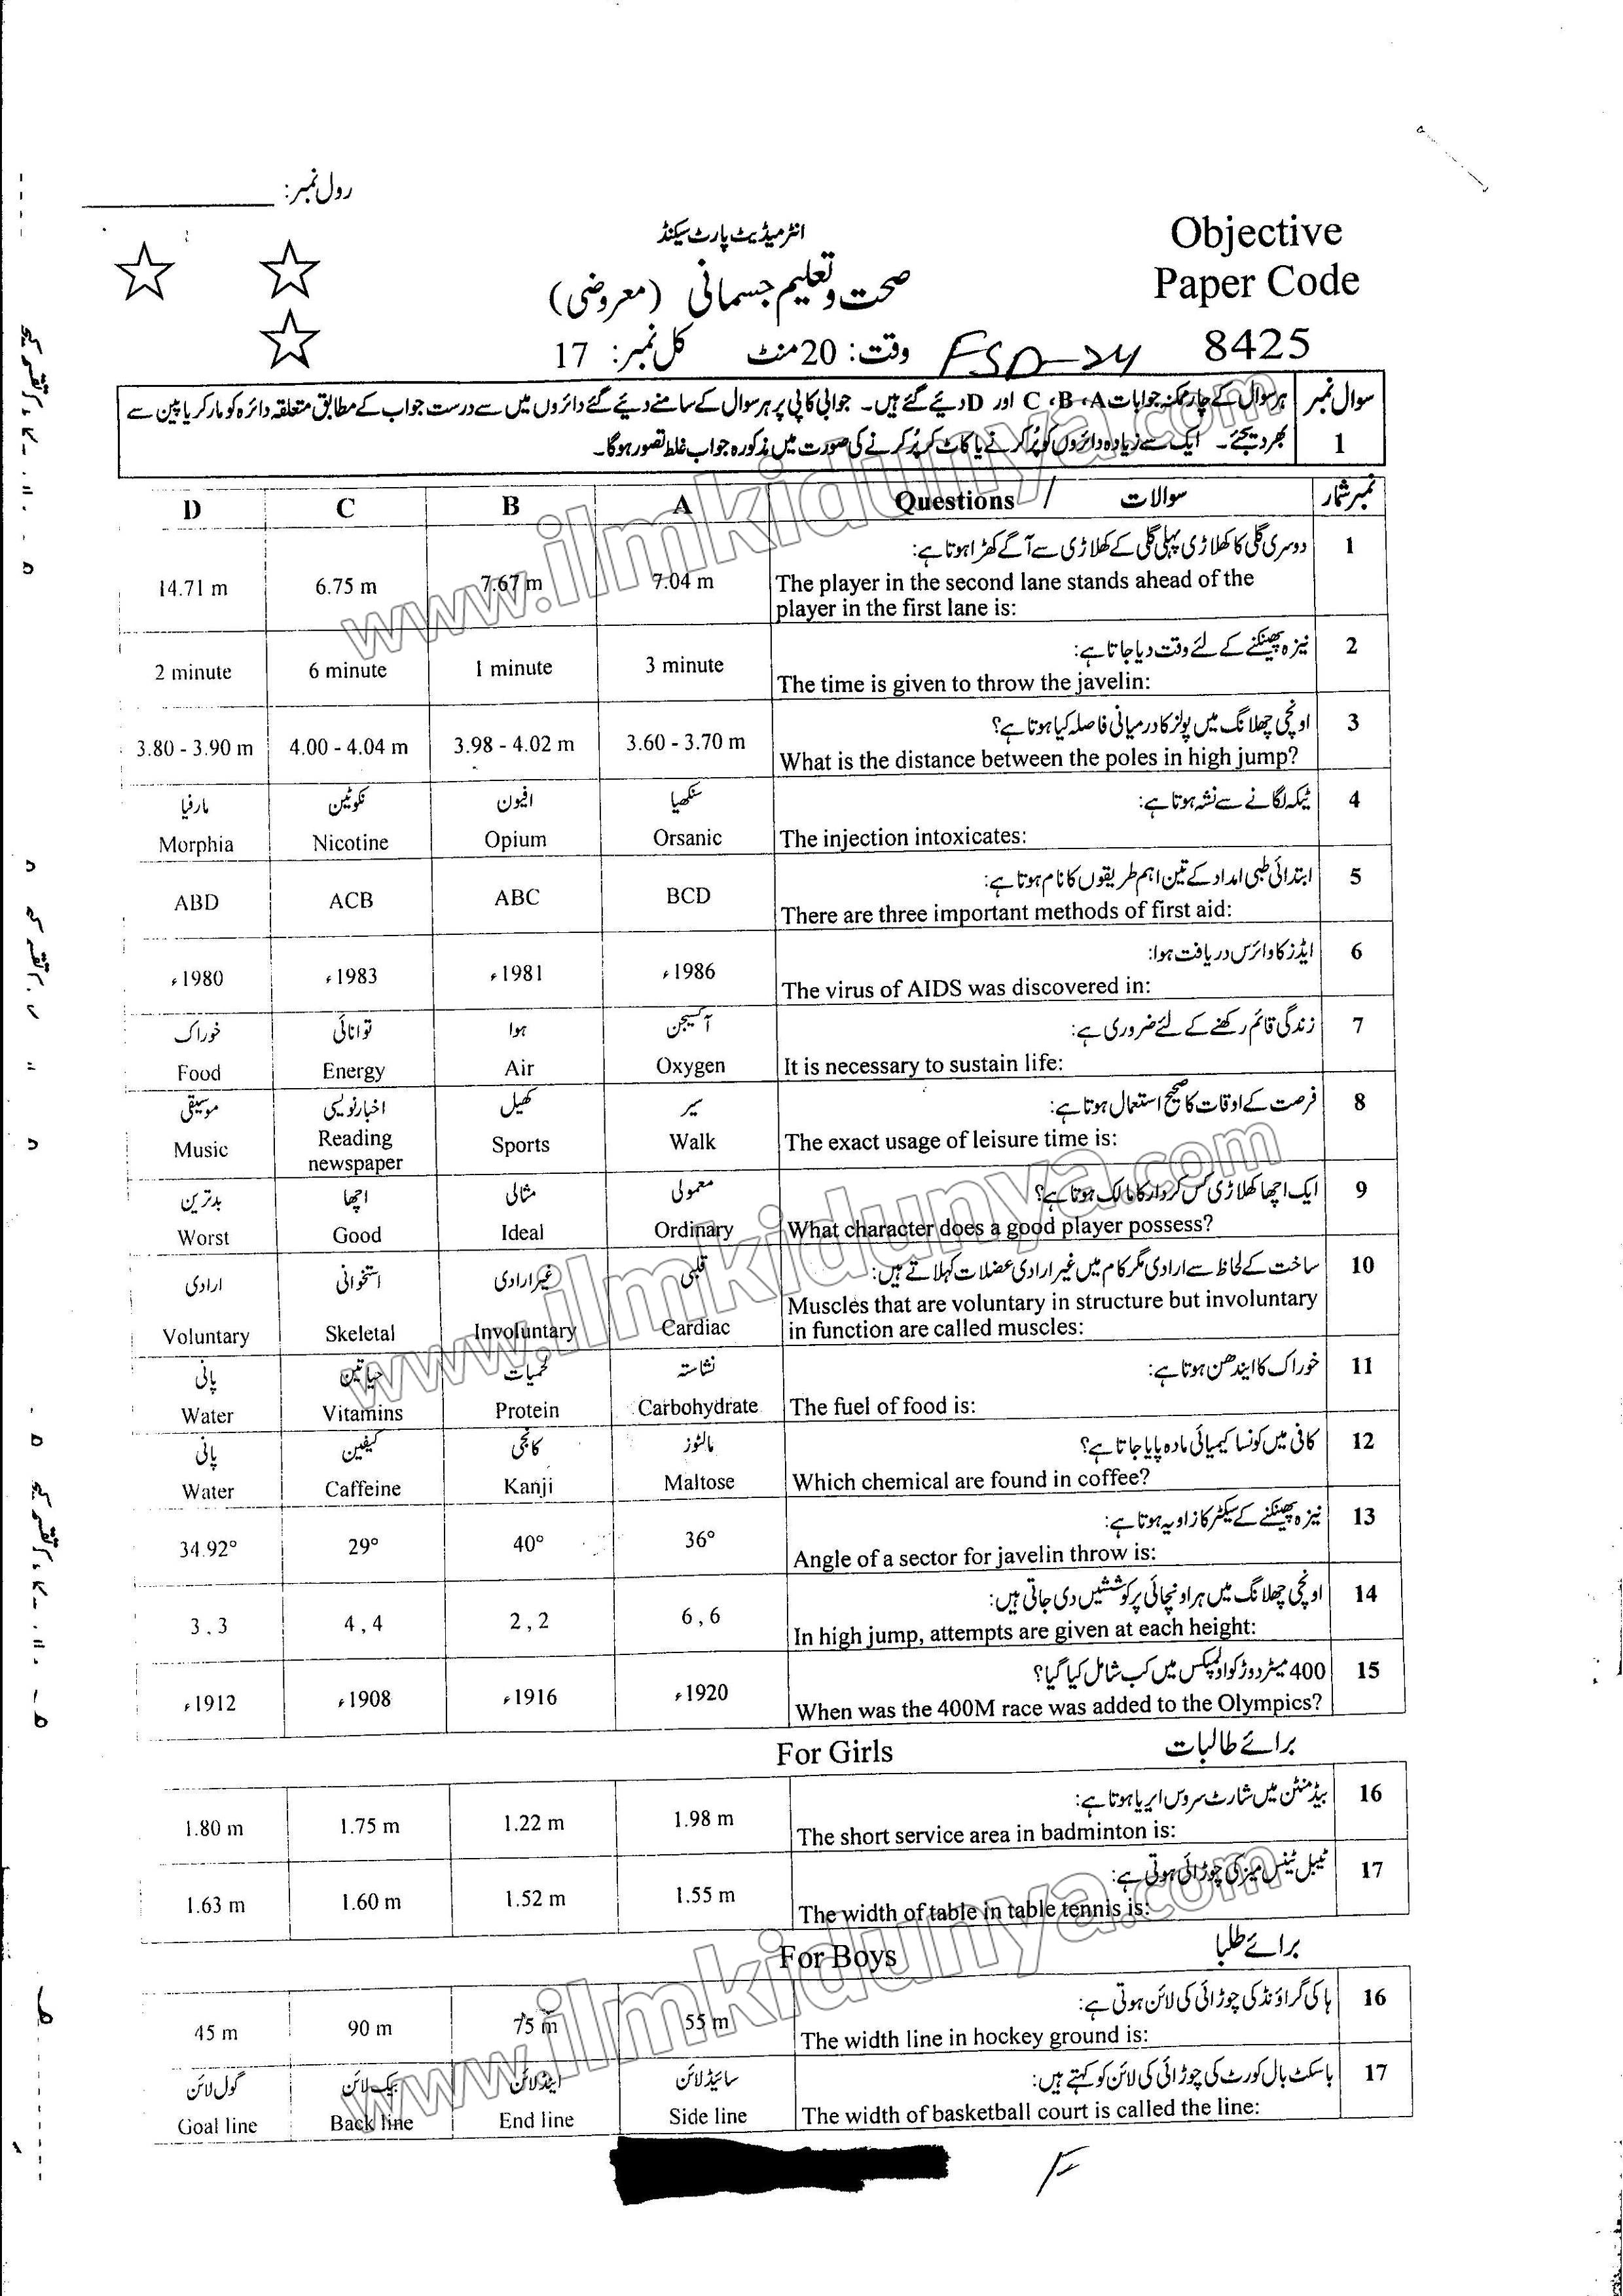 رول نمبر:
انٹرمیڈیٹ پارٹ سیکنڈ
صحت و تعلیم جسمانی (معروضی)
Objective
Paper Code
8425
وقت: 20 منٹ کل نمبر: 17
FSD-24
سوال نمبر 1
ہر سوال کے چار ممکنہ جوابات A، B، C اور D دیئے گئے ہیں۔ جوابی کاپی پر ہر سوال کے سامنے دیئے گئے دائروں میں سے درست جواب کے مطابق متعلقہ دائرہ کو مارکر یا پین سے
بھر دیجئے۔ ایک سے زیادہ دائروں کو پُر کرنے یا کاٹ کر پُر کرنے کی صورت میں مذکورہ جواب غلط تصور ہوگا۔
D C B A Questions / سوالات نمبر شمار
دوسری گلی کا کھلاڑی پہلی گلی کے کھلاڑی سے آگے کھڑا ہوتا ہے: 1
14.71 m 6.75 m 7.67 m 7.04 m The player in the second lane stands ahead of the
player in the first lane is:
نیزہ پھینکنے کے لئے وقت دیا جاتا ہے: 2
2 minute 6 minute 1 minute 3 minute The time is given to throw the javelin:
اونچی چھلانگ میں پولز کا درمیانی فاصلہ کیا ہوتا ہے؟ 3
3.80 - 3.90 m 4.00 - 4.04 m 3.98 - 4.02 m 3.60 - 3.70 m What is the distance between the poles in high jump?
مارفیا نکوٹین افیون سنکھیا ٹیکہ لگانے سے نشہ ہوتا ہے: 4
Morphia Nicotine Opium Orsanic The injection intoxicates:
ابتدائی طبی امداد کے تین اہم طریقوں کا نام ہوتا ہے: 5
ABD ACB ABC BCD There are three important methods of first aid:
ایڈز کا وائرس دریافت ہوا: 6
1980ء 1983ء 1981ء 1986ء The virus of AIDS was discovered in:
خوراک توانائی ہوا آکسیجن زندگی قائم رکھنے کے لئے ضروری ہے: 7
Food Energy Air Oxygen It is necessary to sustain life:
موسیقی اخبار نویسی کھیل سیر فرصت کے اوقات کا صحیح استعمال ہوتا ہے: 8
Music Reading newspaper Sports Walk The exact usage of leisure time is:
بدترین اچھا مثالی معمولی ایک اچھا کھلاڑی کس کردار کا مالک ہوتا ہے؟ 9
Worst Good Ideal Ordinary What character does a good player possess?
ارادی استخوانی غیر ارادی قلبی ساخت کے لحاظ سے ارادی مگر کام میں غیر ارادی عضلات کہلاتے ہیں: 10
Voluntary Skeletal Involuntary Cardiac Muscles that are voluntary in structure but involuntary
in function are called muscles:
پانی حیاتین لحمیات نشاستہ خوراک کا ایندھن ہوتا ہے: 11
Water Vitamins Protein Carbohydrate The fuel of food is:
پانی کیفین کانجی مالٹوز کافی میں کونسا کیمیائی مادہ پایا جاتا ہے؟ 12
Water Caffeine Kanji Maltose Which chemical are found in coffee?
نیزہ پھینکنے کے سیکٹر کا زاویہ ہوتا ہے: 13
34.92° 29° 40° 36° Angle of a sector for javelin throw is:
اونچی چھلانگ میں ہر اونچائی پر کوششیں دی جاتی ہیں: 14
3 , 3 4 , 4 2 , 2 6 , 6 In high jump, attempts are given at each height:
400 میٹر دوڑ کو اولمپکس میں کب شامل کیا گیا؟ 15
1912ء 1908ء 1916ء 1920ء When was the 400M race was added to the Olympics?
For Girls برائے طالبات
بیڈمنٹن میں شارٹ سروس ایریا ہوتا ہے: 16
1.80 m 1.75 m 1.22 m 1.98 m The short service area in badminton is:
ٹیبل ٹینس میز کی چوڑائی ہوتی ہے: 17
1.63 m 1.60 m 1.52 m 1.55 m The width of table in table tennis is:
For Boys برائے طلبا
ہاکی گراؤنڈ کی چوڑائی کی لائن ہوتی ہے: 16
45 m 90 m 75 m 55 m The width line in hockey ground is:
گول لائن بیک لائن اینڈ لائن سائیڈ لائن باسکٹ بال کورٹ کی چوڑائی کی لائن کو کہتے ہیں: 17
Goal line Back line End line Side line The width of basketball court is called the line:
www.ilmkidunya.com
www.ilmkidunya.com
www.ilmkidunya.com